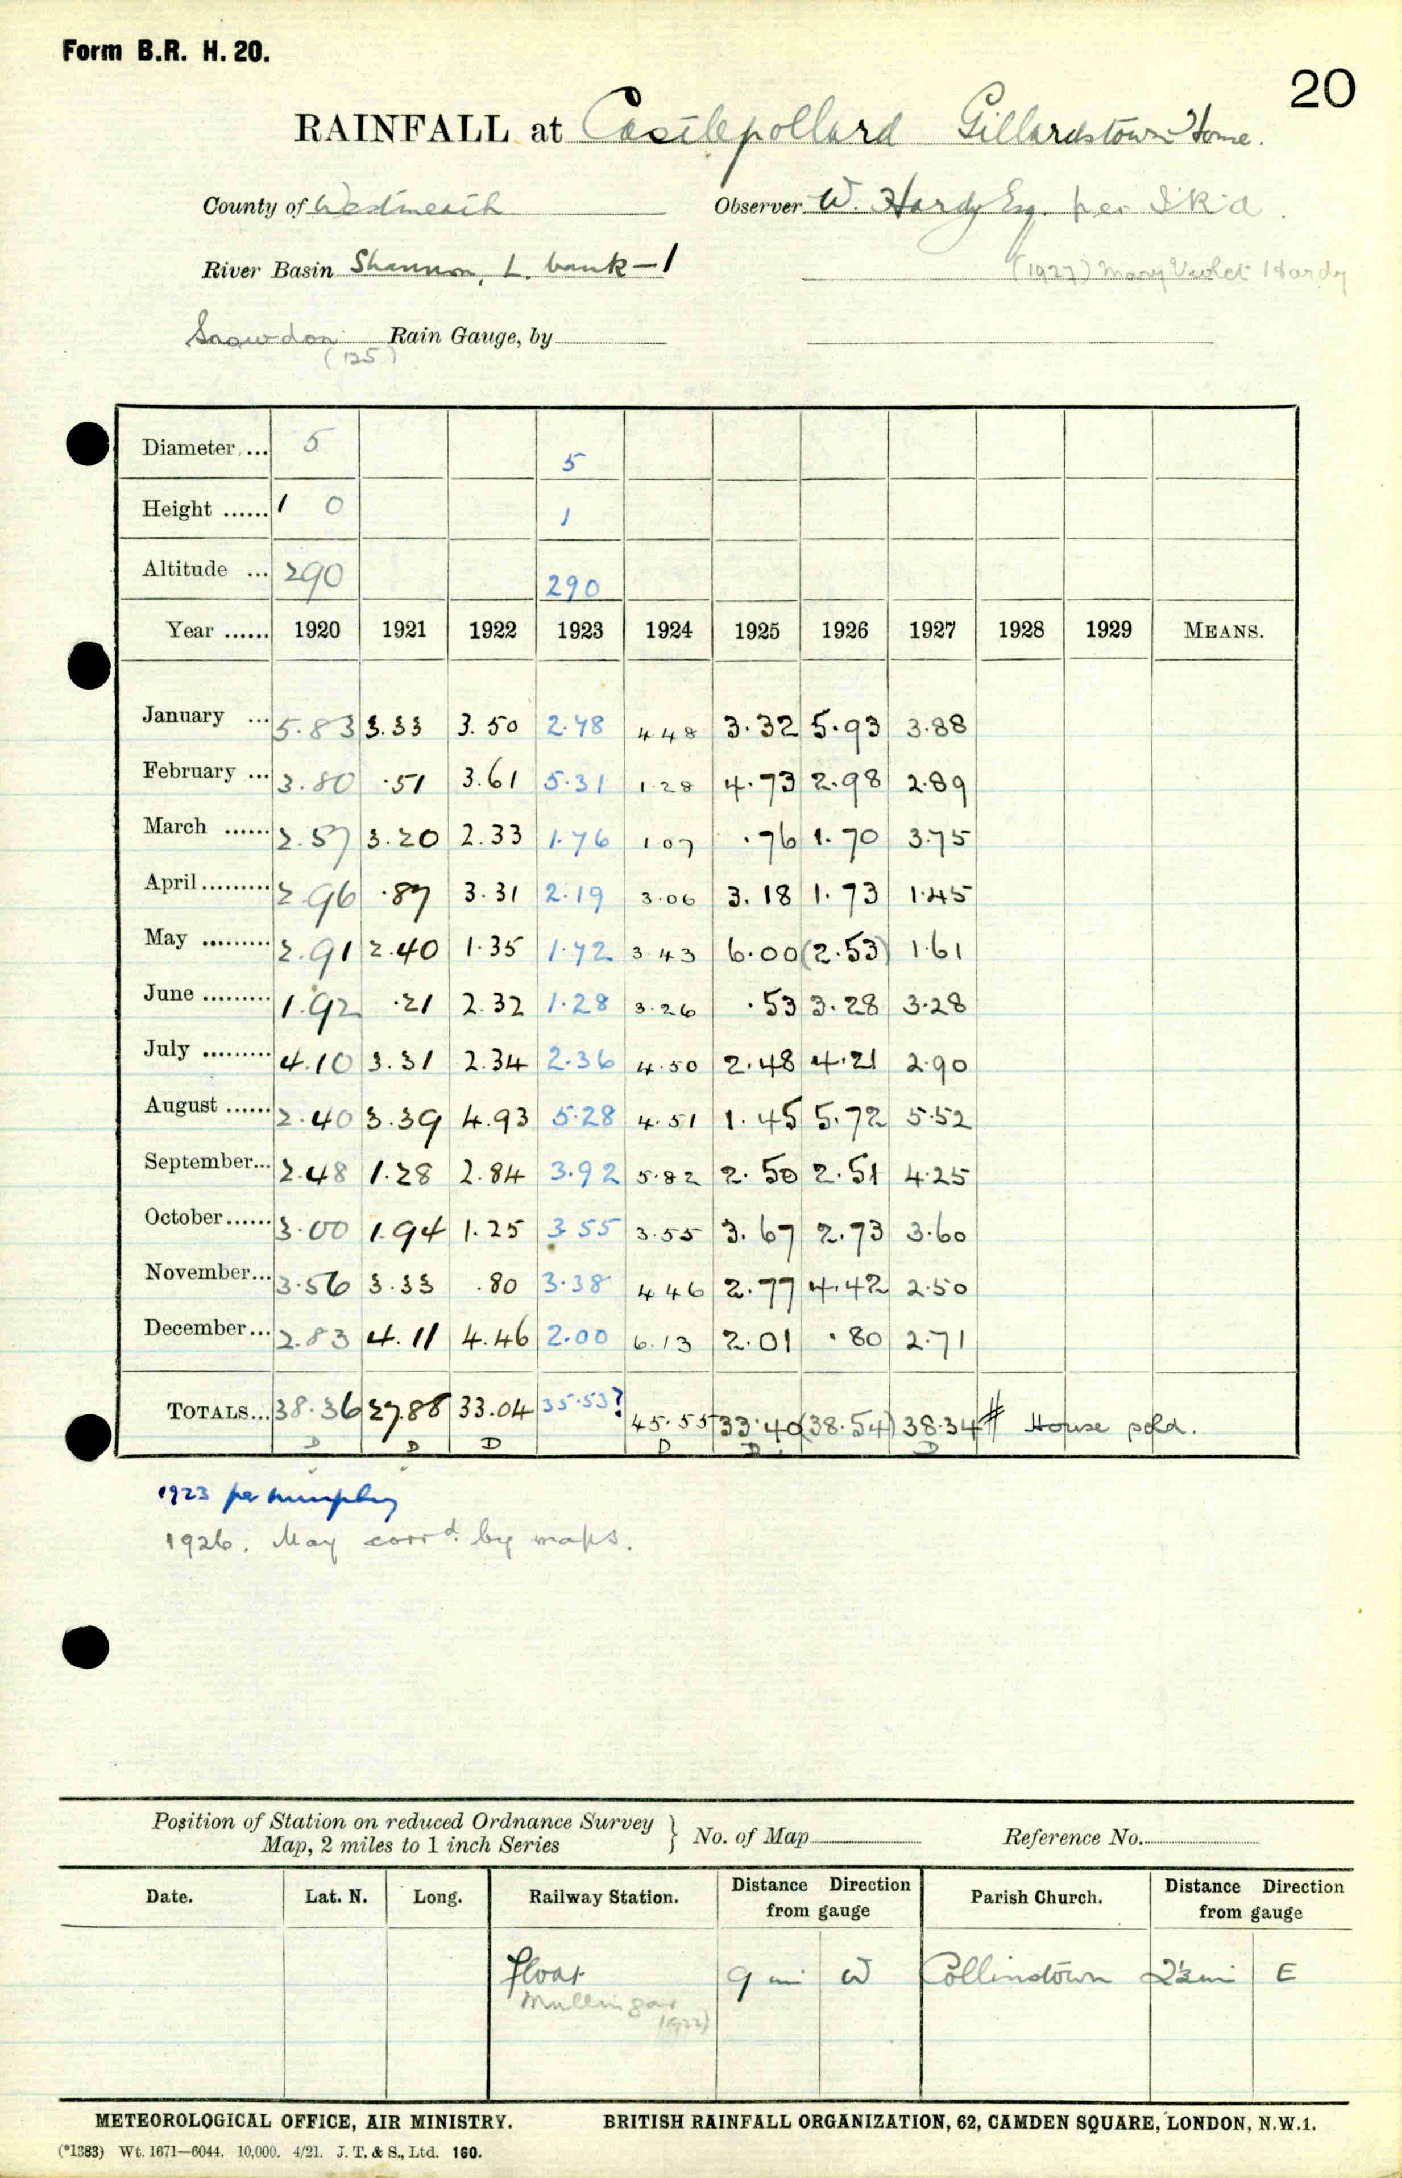 Form B.R. H. 20.
20
RAINFALL at Castlepollard Gillardstown Home.
County of Westmeath Observer W. Hardy Esq. per
River Basin Shannon, L. bank - 1 (1927) Mary Violet Hardy
Snowdon Rain Gauge, by
(125)
Diameter ... 5 5
Height ...... 1 0 1
Altitude ... 290 290
Year ...... 1920 1921 1922 1923 1924 1925 1926 1927 1928 1929 MEANS.
January ... 5.83 3.33 3.50 2.48 4.48 3.32 5.93 3.88
February ... 3.80 .51 3.61 5.31 1.28 4.73 2.98 2.89
March ...... 2.57 3.20 2.33 1.76 1.07 .76 1.70 3.75
April ......... 2.96 .87 3.31 2.19 3.06 3.18 1.73 1.45
May ......... 2.91 2.40 1.35 1.72 3.43 6.00 (2.53) 1.61
June ......... 1.92 .21 2.32 1.28 3.26 .53 3.28 3.28
July ......... 4.10 3.31 2.34 2.36 4.50 2.48 4.21 2.90
August ...... 2.40 3.39 4.93 5.28 4.51 1.45 5.72 5.52
September... 2.48 1.28 2.84 3.92 5.82 2.50 2.51 4.25
October...... 3.00 1.94 1.25 3.55 3.55 3.67 2.73 3.60
November... 3.56 3.33 .80 3.38 4.46 2.77 4.42 2.50
December... 2.83 4.11 4.46 2.00 6.13 2.01 .80 2.71
TOTALS... 38.36 27.88 33.04 35.53? 45.55 33.40 (38.54) 38.34 # House sold.
D D D D D D
1923 per
1926. May corrd. by maps.
Position of Station on reduced Ordnance Survey
Map, 2 miles to 1 inch Series } No. of Map Reference No.
Date. Lat. N. Long. Railway Station. Distance Direction from gauge Parish Church. Distance Direction from gauge
Float 9 mi W Collinstown 2½mi E
Mullingar
(1922)
METEOROLOGICAL OFFICE, AIR MINISTRY. BRITISH RAINFALL ORGANIZATION, 62, CAMDEN SQUARE, LONDON, N.W.1.
(*1383) Wt. 1671—6044. 10,000. 4/21. J. T. & S., Ltd. 160.